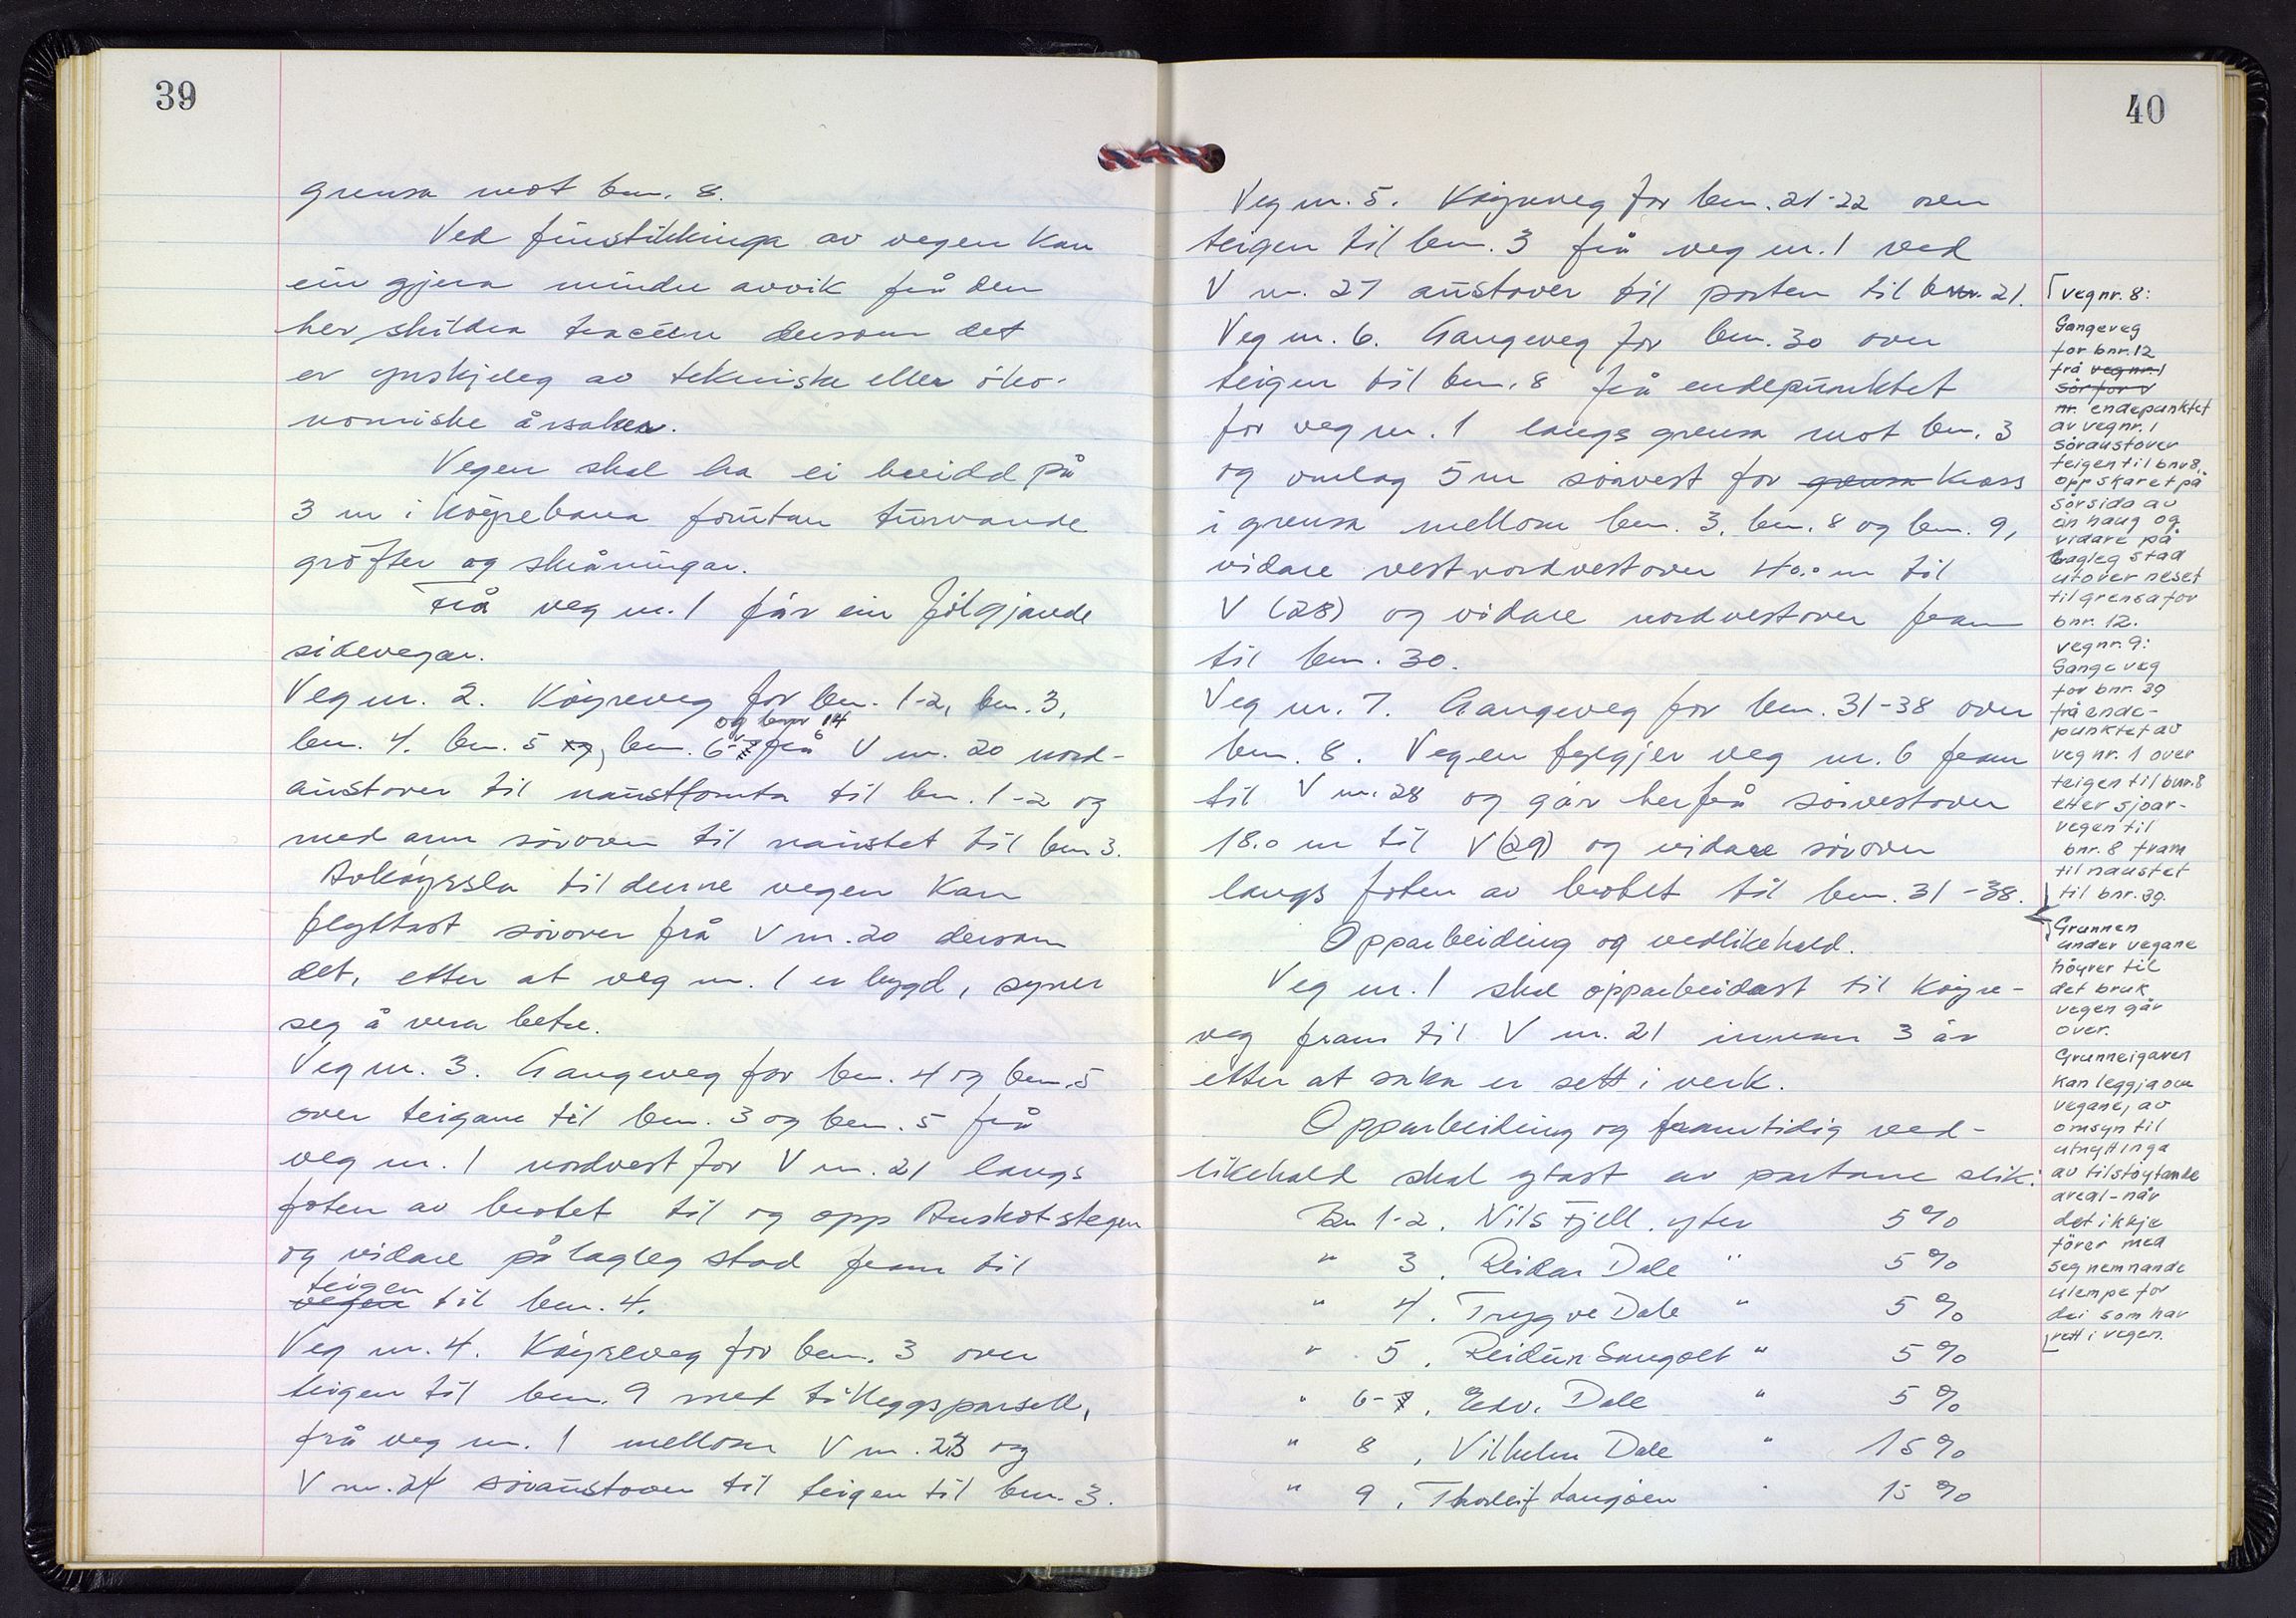 39
grensa mot bnr. 8.
Ved finstikkinga av vegen kan
ein gjera mindre avvik frå den
her skildra traceén dersom det
er ynskjeleg av tekniske eller öko-
nomiske årsaker.
Vegen skal ha ei breidd på
3 m i köyrebana föruten turvande
gröfter og skråningar.
Frå veg nr. 1 får ein fölgjande
sidevegar.
Veg nr. 2. Köyreveg for bnr. 1-2, bnr. 3,
og bnr 14
bnr. 4. bnr. 5 og, bnr. 6-7 frå V nr. 20 nord-
austover til nausttomta til bnr. 1-2 og
med arm sörover til naustet til bnr 3.
Avköyrsla til denne vegen kan
flyttast sörover frå V nr. 20 dersom
det, etter at veg nr. 1 er bygd, syner
seg å vera betre.
Veg nr. 3. Gangeveg for bnr. 4 og bnr. 5
over teigane til bnr. 3 og bnr. 5 frå
veg nr. 1 nordvest for V nr. 21 langs
foten av brotet til og opp Auskotstegen
og vidare på lagleg stad fram til
teigen
vegen til bnr. 4.
Veg nr. 4. Köyreveg for bnr. 3 over
teigen til bnr. 9 med tilleggsparsell,
frå veg nr. 1 mellom V nr. 23 og
V nr. 24 söraustover til teigen til bnr. 3.
40
Veg nr. 5. Köyreveg for bnr. 21-22 over
teigen til bnr. 3 frå veg nr. 1 ved
V nr. 27 austover til porten til bnr. 21.
Veg nr. 6. Gangeveg for bnr. 30 over
teigen til bnr. 8 frå endepunktet
for veg nr. 1 langs grensa mot bnr. 3
og omlag 5 m sörvest for grensa kross
i grensa mellom bnr. 3, bnr. 8 og bnr. 9,
vidare vestnordvestover 40.0 m til
V (28) og vidare nordvestover fram
til bnr. 30.
Veg nr. 7. Gangeveg for bnr. 31-38 over
bnr. 8. Vegen fylgjer veg nr. 6 fram
til V nr. 28 og går herfrå sörvestover
18.0 m til V (29) og vidare sörover
langs foten av brotet til bnr. 31-38.
Opparbeiding og vedlikehald.
Veg nr. 1 skal opparbeidast til köyre-
veg fram til V nr. 21 innan 3 år
etter at saka er sett i verk.
Opparbeiding og framtidig ved-
likehald skal ytast av partane slik:
Bnr 1-2. Nils Fjell. yter 5 %
" 3. Reidar Dale " 5 %
" 4. Trygve Dale " 5 %
" 5. Reidun Sangolt " 5 %
" 6-7. Edv. Dale " 5 %
" 8, Vilhelm Dale " 15 %
" 9, Thorleif Langöen " 15 %
Veg nr. 8:
Gangeveg
for bnr. 12
frå veg nr. 1
sör for V
nr. endepunktet
av veg nr. 1
söraustover
teigen til bnr 8,
opp skaret på
sörsida av
ein haug og
vidare på
lagleg stad
utover neset
til grensa for
bnr. 12.
veg nr. 9:
Gangeveg
for bnr. 39
frå ende-
punktet av
veg nr. 1 over
teigen til bnr. 8
etter sjöar-
vegen til
bnr. 8 fram
til naustet
til bnr. 39.
Grunnen
under vegane
höyrer til
det bruk
vegen går
over.
Grunneigaren
kan leggja om
vegane, av
omsyn til
utnyttinga
av tilstöytande
areal - når
det ikkje
förer med
seg nemnande
ulempe for
dei som har
rett i vegen.